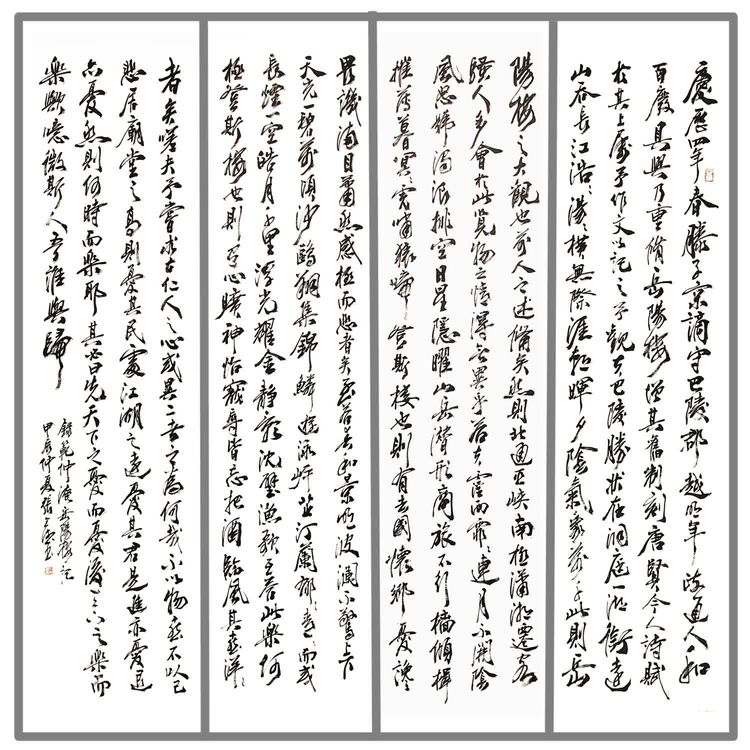 慶歷四年春滕子京謫守巴陵郡越明年政通人和
百廢具興乃重脩岳陽樓增其舊制刻唐賢今人詩賦
於其上屬予作文以記之予觀夫巴陵勝狀在洞庭一湖銜遠
山吞長江浩浩湯湯橫無際涯朝暉夕陰氣象萬千此則岳
陽樓之大觀也前人之述備矣然則北通巫峽南極瀟湘遷客
騷人多會於此覽物之情得無異乎若夫霪雨霏霏連月不開陰
風怒號濁浪排空日星隱曜山岳潛形商旅不行檣傾楫
摧薄暮冥冥虎嘯猿啼登斯樓也則有去國懷鄉憂讒
畏譏滿目蕭然感極而悲者矣至若春和景明波瀾不驚上下
天光一碧萬頃沙鷗翔集錦鱗游泳岸芷汀蘭郁郁青青而或
長煙一空皓月千里浮光耀金靜影沈璧漁歌互答此樂何
極登斯樓也則有心曠神怡寵辱皆忘把酒臨風其喜洋洋
者矣嗟夫予嘗求古仁人之心或異二者之為何哉不以物喜不以己
悲居廟堂之高則憂其民處江湖之遠憂其君是進亦憂退
亦憂然則何時而樂耶其必曰先天下之憂而憂後天下之樂而
樂歟噫微斯人吾誰與歸
錄范仲淹岳陽樓記
甲辰仲夏張